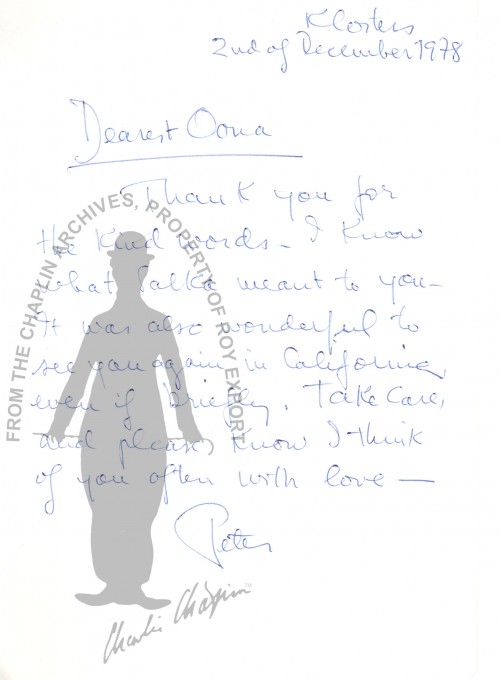 Klosters
2nd of December 1978
Dearest Oona
Thank you for
the kind words - I know
what Salka meant to you -
It was also wonderful to
see you again in California,
even if briefly. Take Care,
and please know I think
of you often with love —
Peter
FROM THE CHAPLIN ARCHIVES, PROPERTY OF ROY EXPORT
Charlie Chaplin